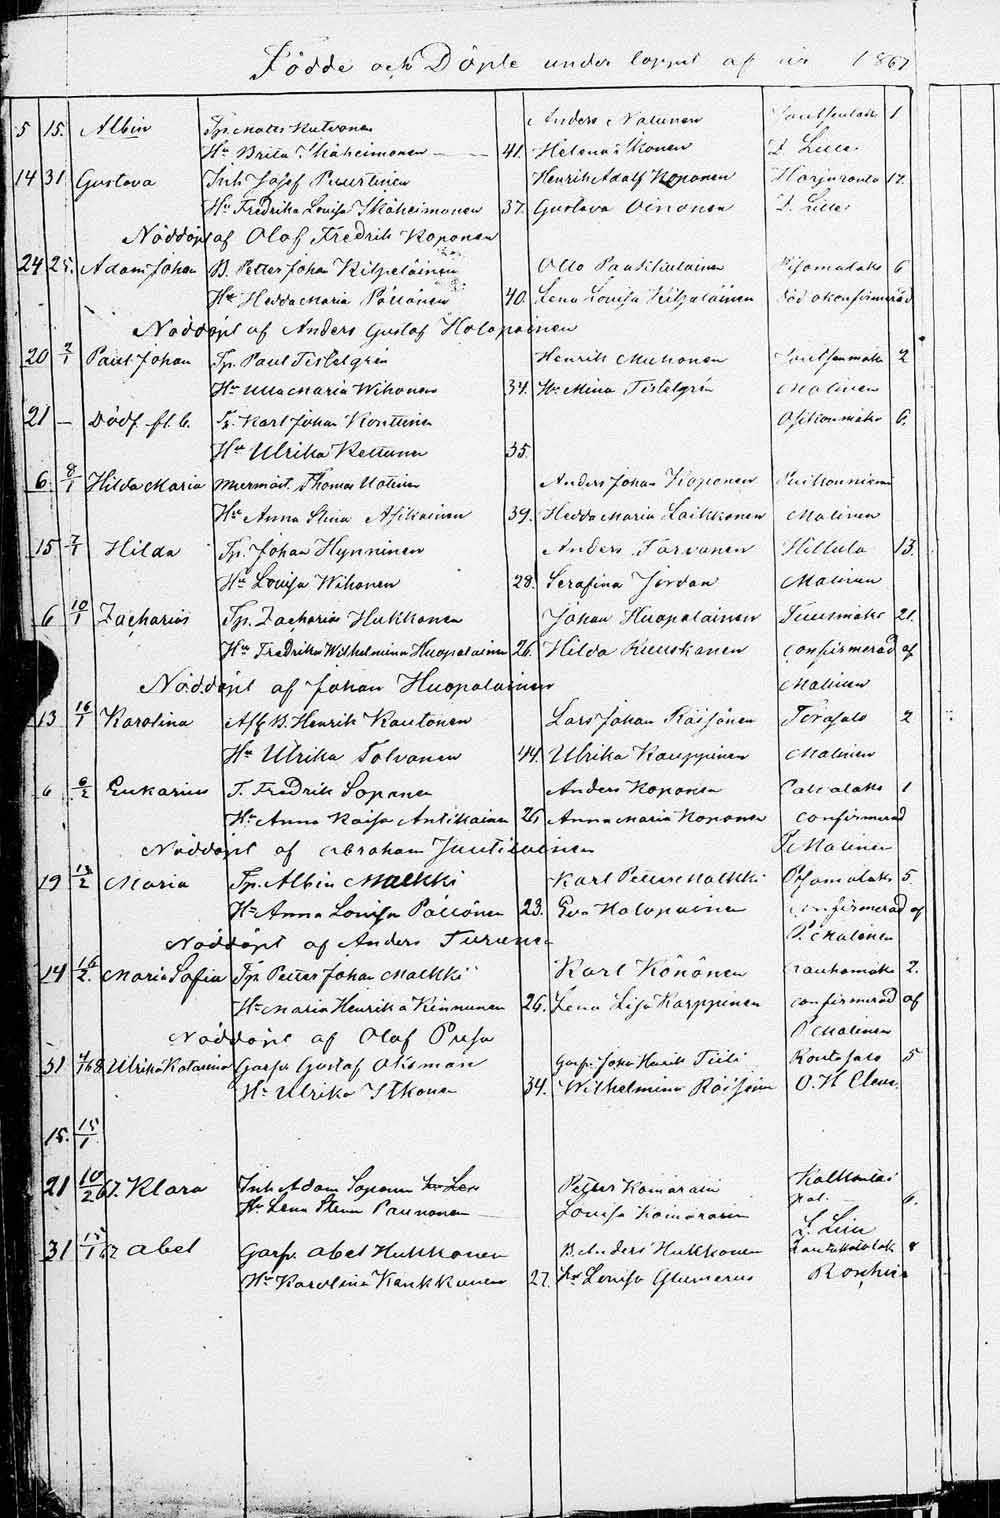 Födde och Döpte under loppet af år 1867
5 15. Albin Tp. Mats Kutvonen Anders Natunen 1
Hu Brita Ikäheimonen 41. Helena Ikonen L. Lilie
14 31 Gustava Inh Josef Puurtinen Henrik Adolf Koponen Harjuranta 12.
Hu Fredrika Lovisa Ikäheimonen 37. Gustava Oinonen L. Lilie
Nöddöpt af Olof Fredrik Koponen
24 25. Adam Johan B. Petter Johan Kilpeläinen Otto Pautikulainen Pisamalaks 6
Hu Hedda Maria Pöllönen 40. Lena Lovisa Kilpeläinen död okonfirmerad
Nöddöpt af Anders Gustaf Holopainen
20 2/1 Paul Johan Tp. Paul Tistelgrén Henrik Muhonen 2
Hu Ulla Maria Wihonen 34. Hu Mina Tistelgrén Malinen
21 — Dödf. fl. b. Karl Johan Konttinen Osikonmäki 6.
Hu Ulrika Kettunen 35.
6. 8/1 Hilda Maria Thomas Uotinen Anders Johan Koponen
Hu Anna Stina Asikainen 39. Hedda Maria Laikkonen Malinen
15 7/1 Hilda Tp. Johan Hynninen Anders Tarvanen Hillula 13.
Hu Lovisa Wihonen 28. Serafina Jordan Malinen
6 10/1 Zacharias Tp. Zacharias Hukkonen Johan Huopalainen Tuusmäki 21.
Hu Fredrika Wilhelmina Huopalainen 26. Hilda Ruuskanen confirmerad af
Nöddöpt af Johan Huopalainen Malinen
13 16/1 Karolina Afsk B. Henrik Kautonen Lars Johan Räisänen 2
Hu Ulrika Tolvanen 44. Ulrika Kauppinen Malinen
6 6/2 Eukarius T. Fredrik Soponen Anders Koponen 1
Hu Anna Kaisa Antikainen 26 Anna Maria Koponen confirmerad
Nöddöpt af Abraham Juutilainen Malinen
19 12/2 Maria Tp. Albin Malkki Karl Petter Malkki Pisamalaks 5.
Hu Anna Lovisa Pöllönen 23. Eva Holopainen confirmerad af
Nöddöpt af Anders Turunen P. Malinen
14 16/2. Maria Sofia Tp. Petter Johan Malkki Karl Könönen Rauhamäki 2.
Hu Maria Henrika Kinnunen 26. Lena Lisa Karppinen confirmerad af
Nöddöpt af Olof Presa P. Malinen
31 7/1 68 Ulrika Katarina Garfv Gustaf Oksman Garfv. Joh Henrik Tiili 5
Hu Ulrika Itkonen 34. Wilhelmina Räisänen O. H. Cleve.
15. 15/1
21 10/2 67. Klara Inh Adam Soponen Petter Komarain
Hu Lena Stina Paunonen Lovisa Komarain 6.
L. Lilie
31 15/1 67 Abel Garfv. Abel Hukkonen B. Anders Hukkonen 8
Hu Karolina Kankkunen 27. Hu Lovisa Glumerus Roschier